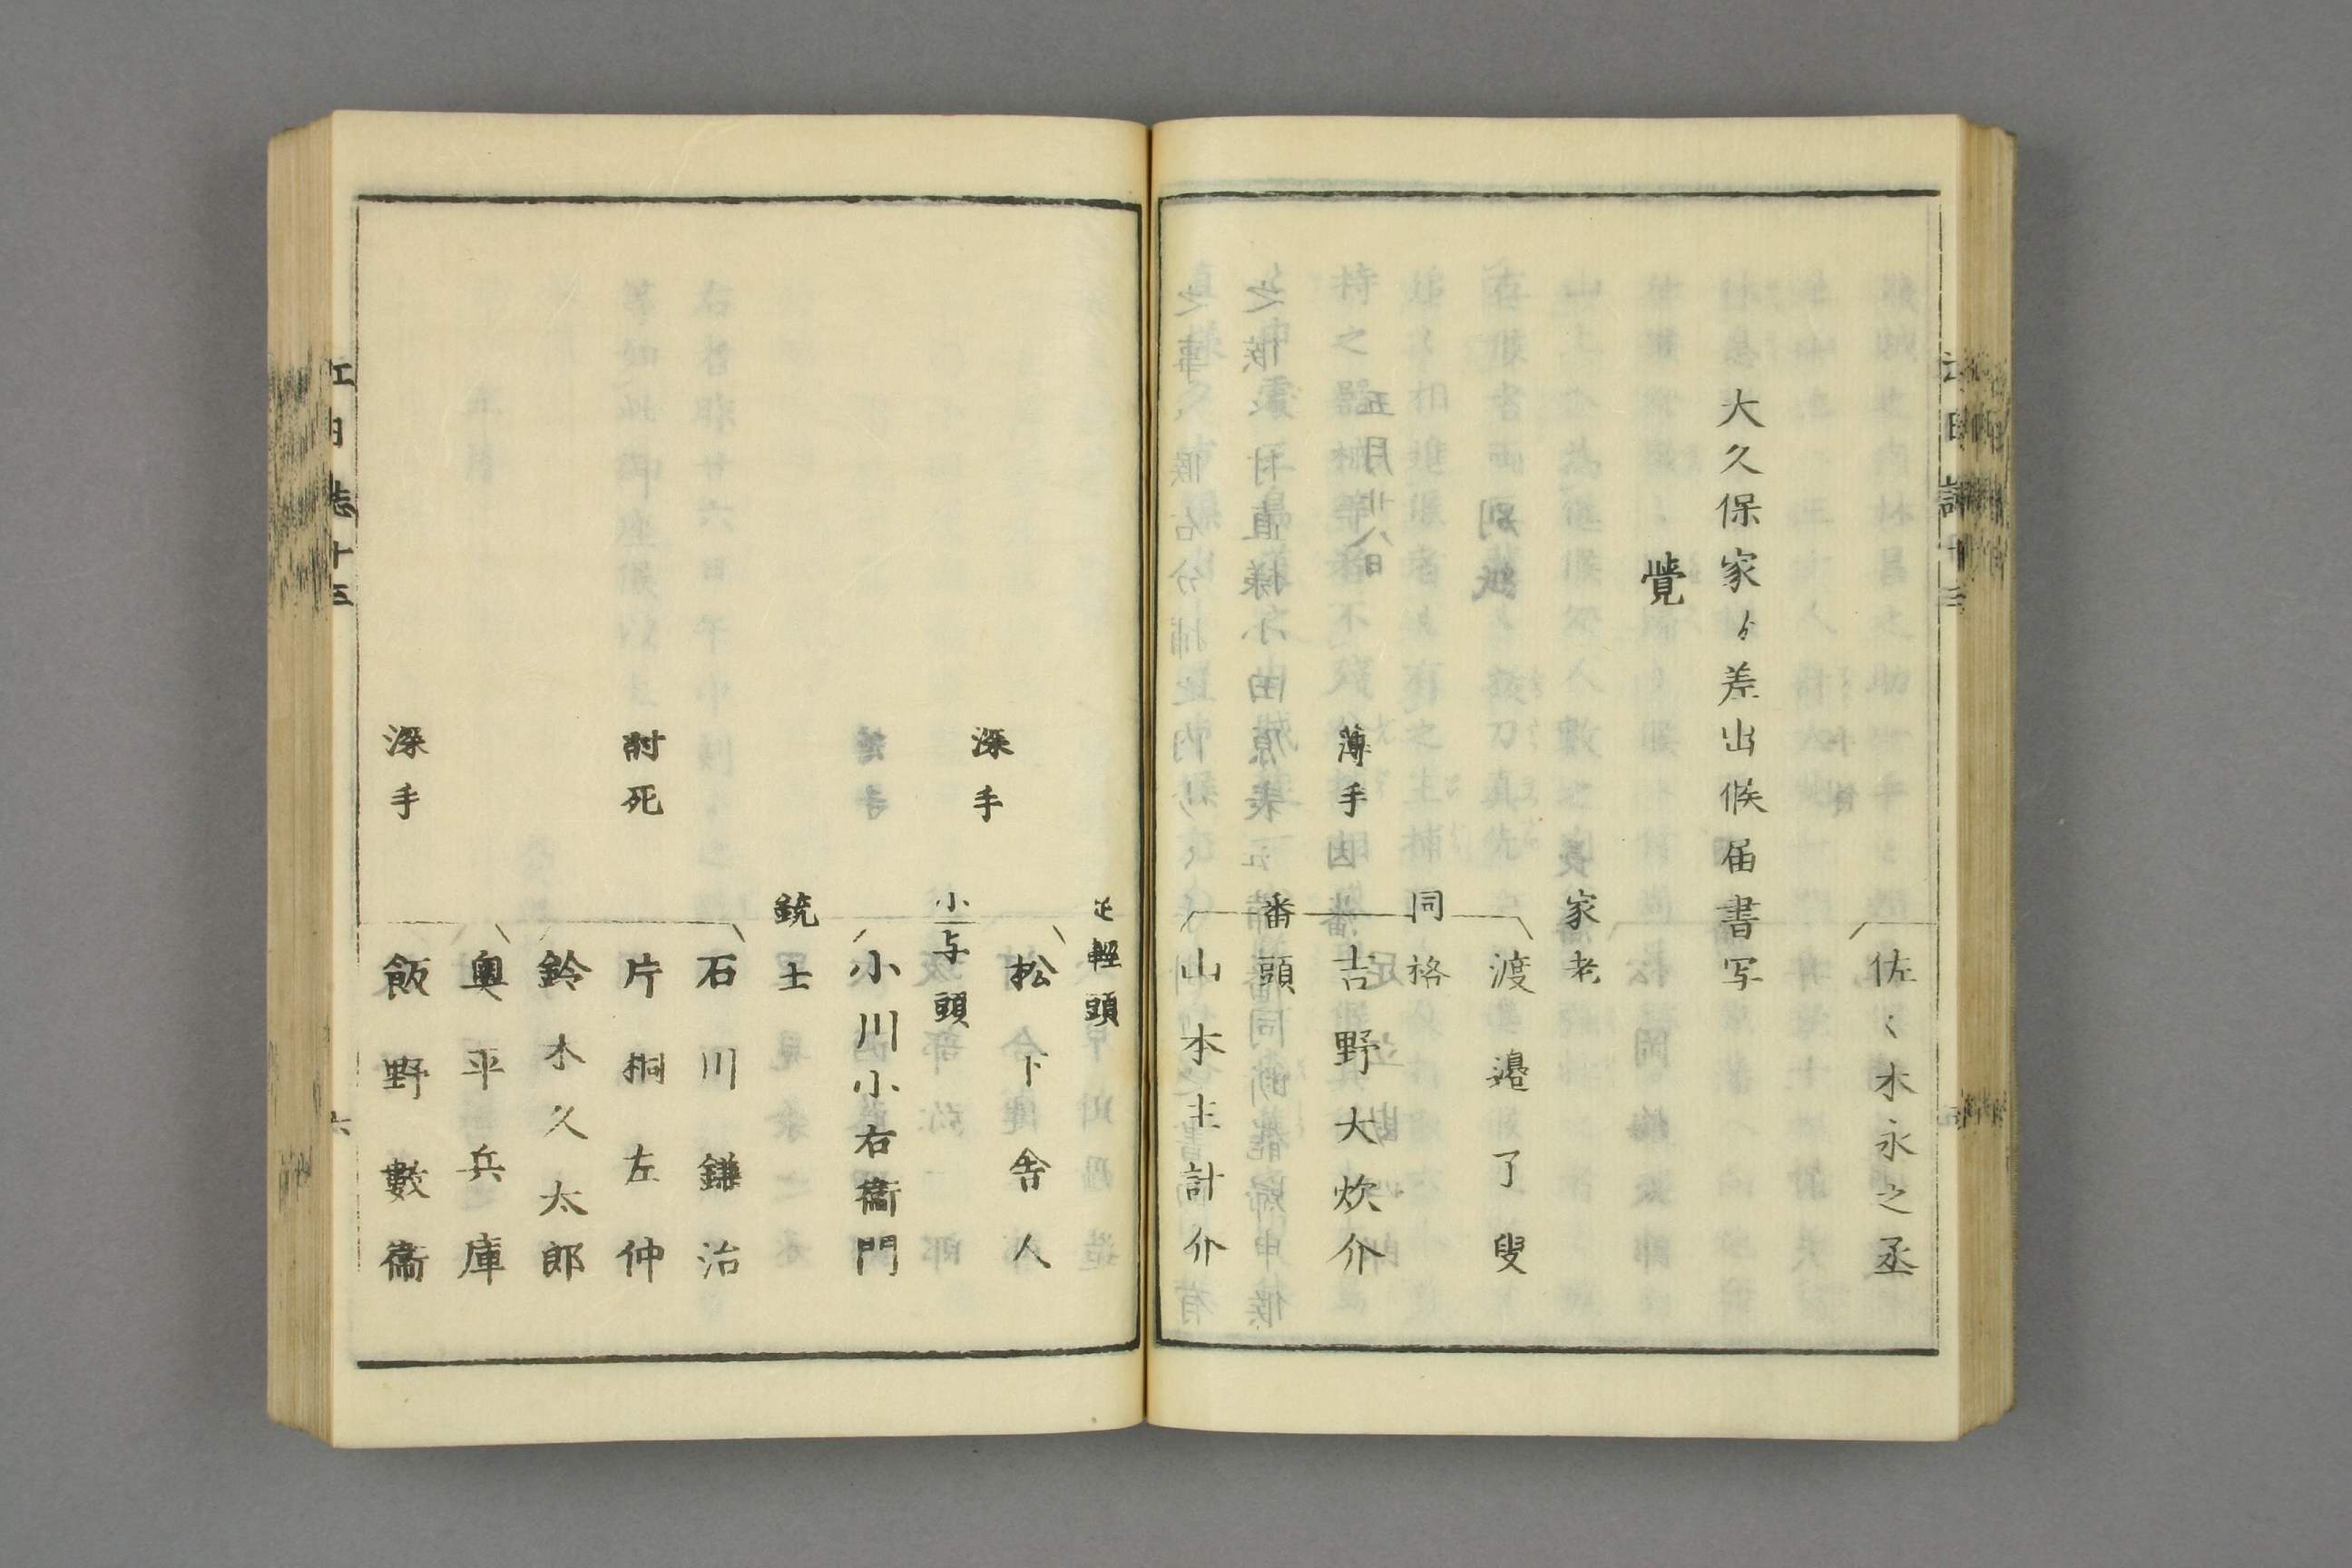 佐々木永之丞
大久保家ゟ差出候届書写
覺
家老
渡邉了叟
同格
薄手 吉野大炊介
番頭
山本主計介
足輕頭
松下舎人
深手
小与頭
小川小右衞門
銃士
石川鎌治
討死 片桐左仲
鈴木久太郎
奥平兵庫
深手 飯野數衞
江日誌十三
六